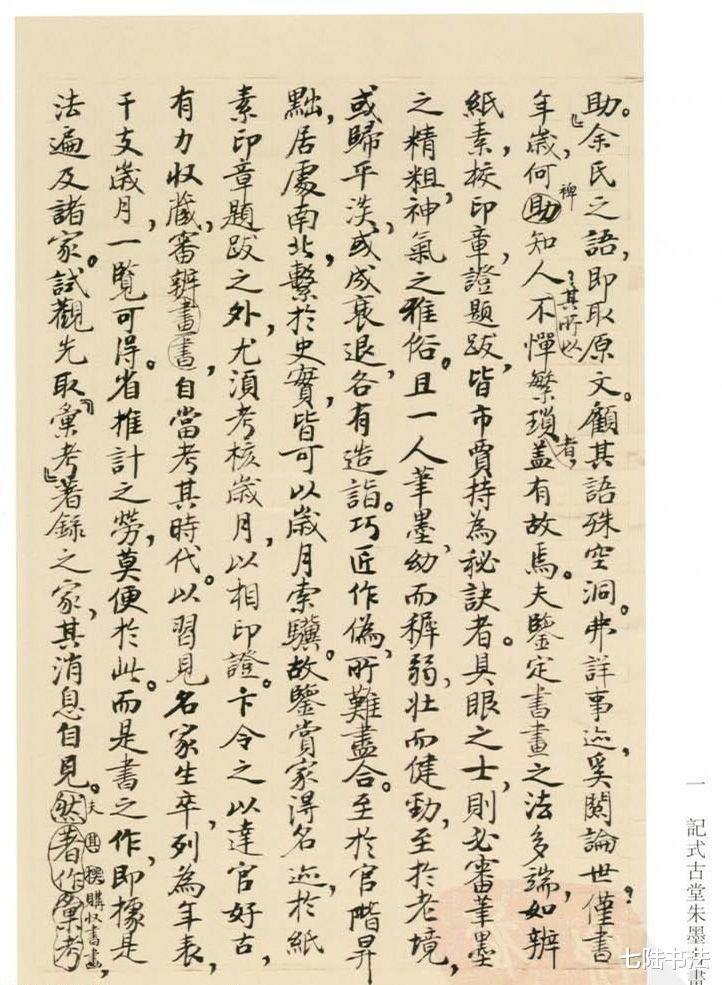 助。余氏之語,即取原文。顧其語殊空洞。弗詳事迹,奚關論世?僅書
年歲,何助裨知人?其所以不憚繁瑣者,蓋有故焉。夫鑒定書畫之法多端,如辨
紙素,校印章,證題跋,皆市賈持為秘訣者。具眼之士,則必審筆墨
之精粗,神氣之雅俗。且一人筆墨,幼而穉弱,壯而健勁,至於老境,
或歸平淡,或成衰退,各有造詣。巧匠作偽,所難盡合。至於官階昇
黜,居處南北,繫於史實,皆可以歲月索驥。故鑒賞家得名迹,於紙
素印章題跋之外,尤須考核歲月,以相印證。卞令之以達官好古,
有力収藏,審辨畫書,自當考其時代。以習見名家生卒,列為年表,
干支歲月,一覽可得。省推計之勞,莫便於此。而是書之作,即據是
法遍及諸家。試觀先取『彙考』著錄之家,其消息自見。然著作彙考,
夫其撰購収書畫
一 記式古堂朱墨書畫
七陆书法